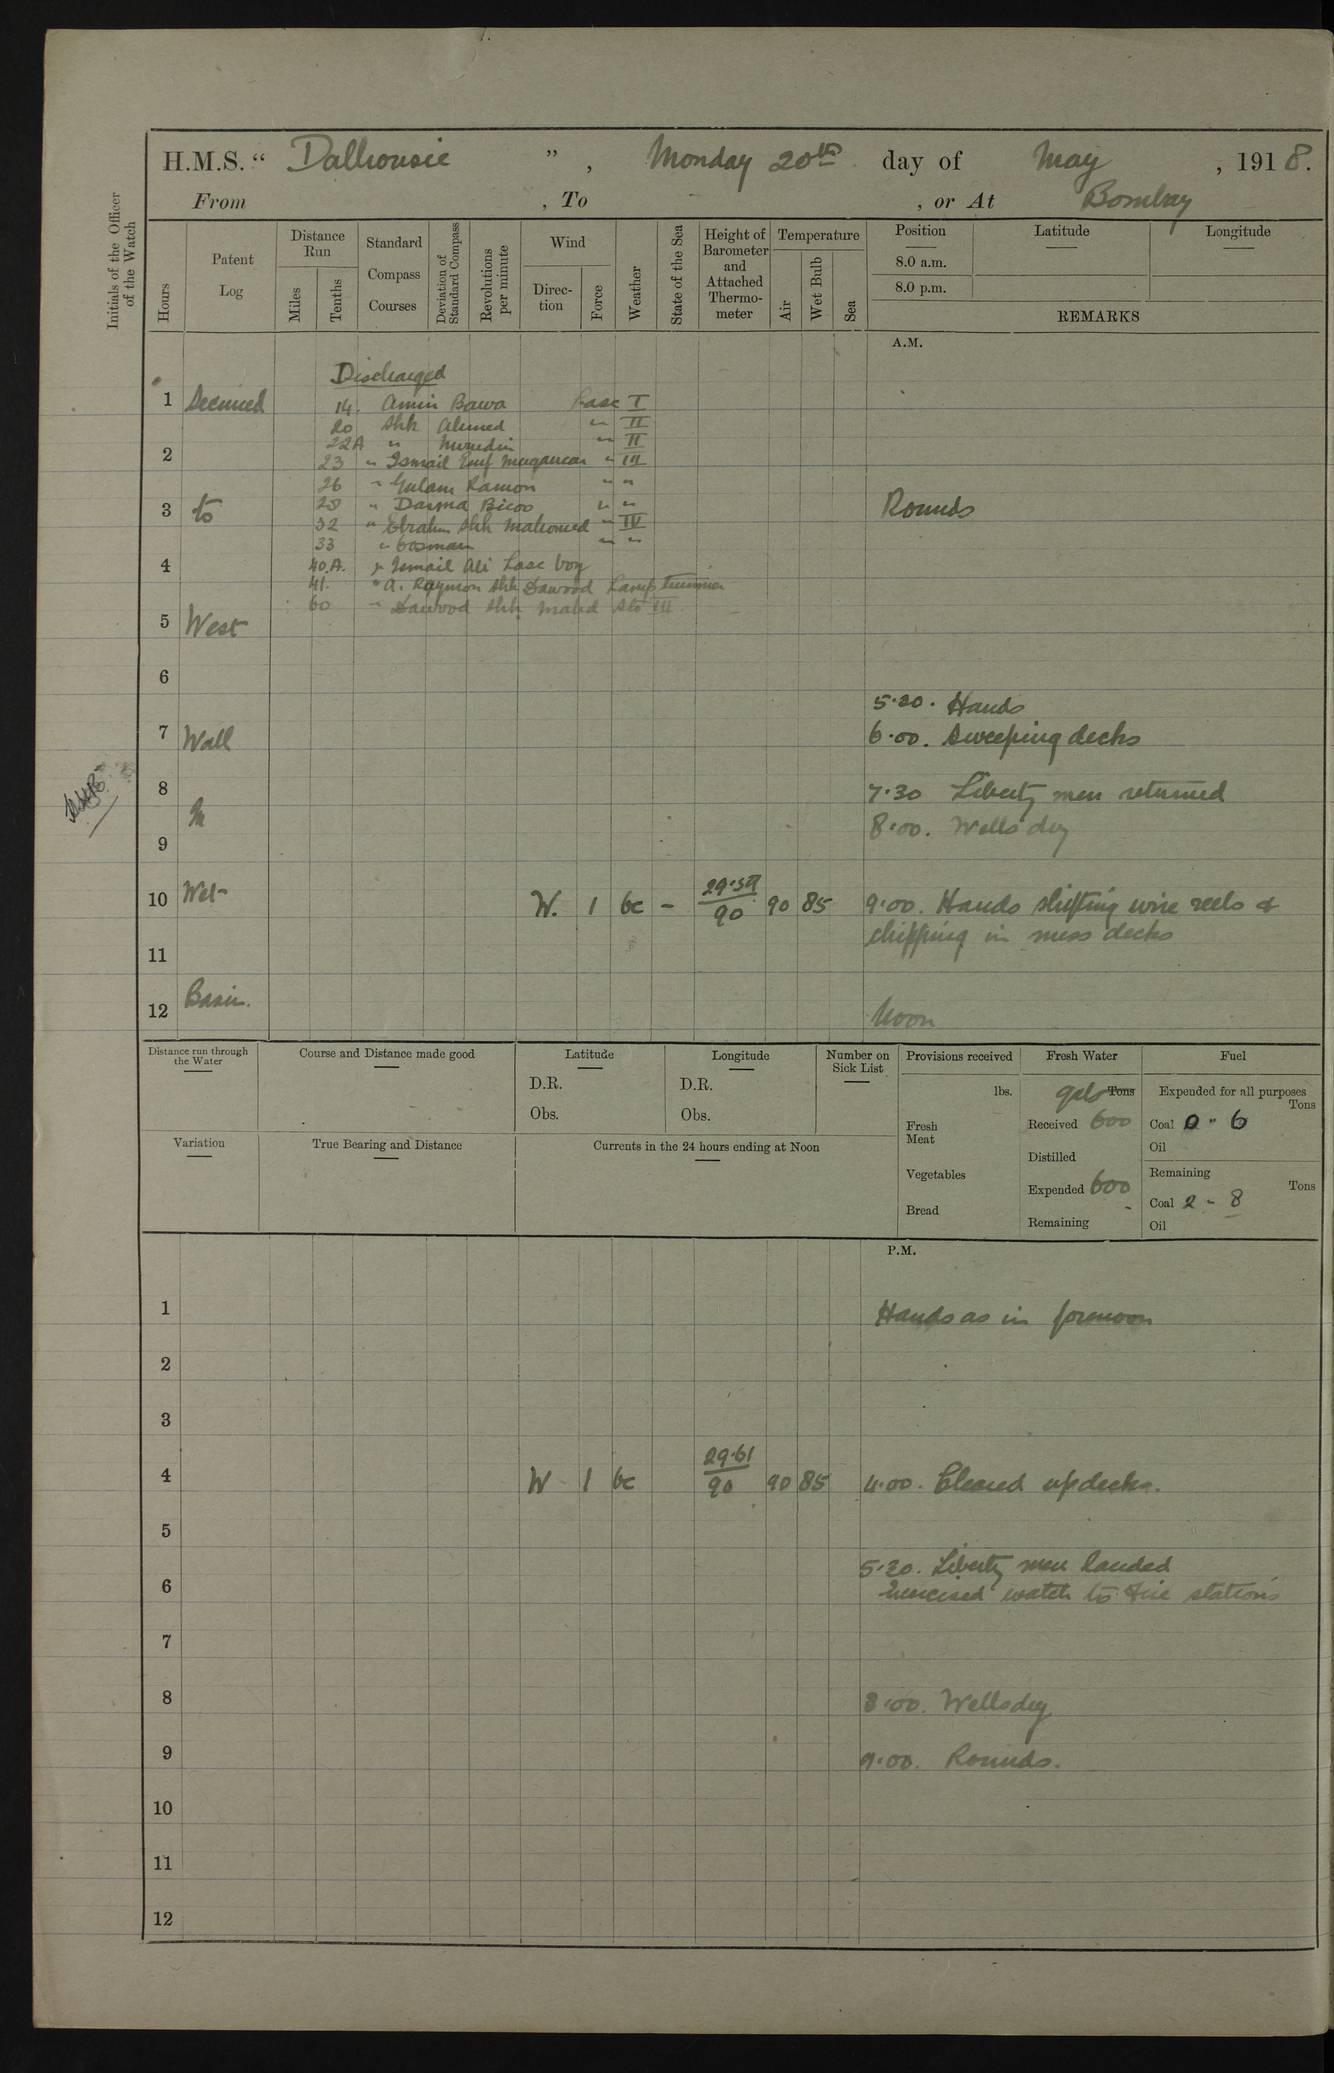 H.M.S. “ Dalhousie ” , Monday 20th day of May , 1918.
From , To , or At Bombay
Initials of the Officer of the Watch
Hours
Patent Log
Distance Run
Miles
Tenths
Standard Compass Courses
Deviation of Standard Compass
Revolutions per minute
Wind
Direction
Force
Weather
State of the Sea
Height of Barometer and Attached Thermometer
Temperature
Air
Wet Bulb
Sea
Position
8.0 a.m.
8.0 p.m.
Latitude
Longitude
REMARKS
A.M.
Discharged
1 Secured 14. Amin Bawa Lasc I
20 Shk Ahmed " II
22A " Nuredin " II
2
23 " Ismail Esuf " III
26 " Gulam Ramon " "
3 to 28 " Dasma " " Rounds
32 " Ebrahim Shk Mahomed " IV
33 " Oosman " "
4 40.A. " Ismail Ali Lasc boy
41. " A. Raymon Shk Dawood Lamp trimmer
60 " Dawood Shk Mahd Sto III
5 West
6
5.30. Hands
7 Wall 6.00. Sweeping decks
8 7.30 Liberty men returned
in 8.00. Wells dry
9
10 Wet W. 1 bc - 29.59 / 90 90 85 9.00. Hands shifting wire reels &
chipping in mess decks
11
Basin.
12 Noon
Distance run through the Water
Course and Distance made good
Latitude
D.R.
Obs.
Longitude
D.R.
Obs.
Number on Sick List
Provisions received
lbs.
Fresh Meat
Vegetables
Bread
Fresh Water
gals Tons
Received 600
Distilled
Expended 600
Remaining -
Fuel
Expended for all purposes
Tons
Coal 0 - 6
Oil
Remaining
Tons
Coal 2 - 8
Oil
Variation
True Bearing and Distance
Currents in the 24 hours ending at Noon
P.M.
1 Hands as in forenoon
2
3
4 W 1 bc 29.61 / 90 90 85 4.00. Cleared up decks.
5
5.30. Liberty men landed
6 Exercised watch to Fire stations
7
8 8.00. Wells dry
9 9.00. Rounds.
10
11
12